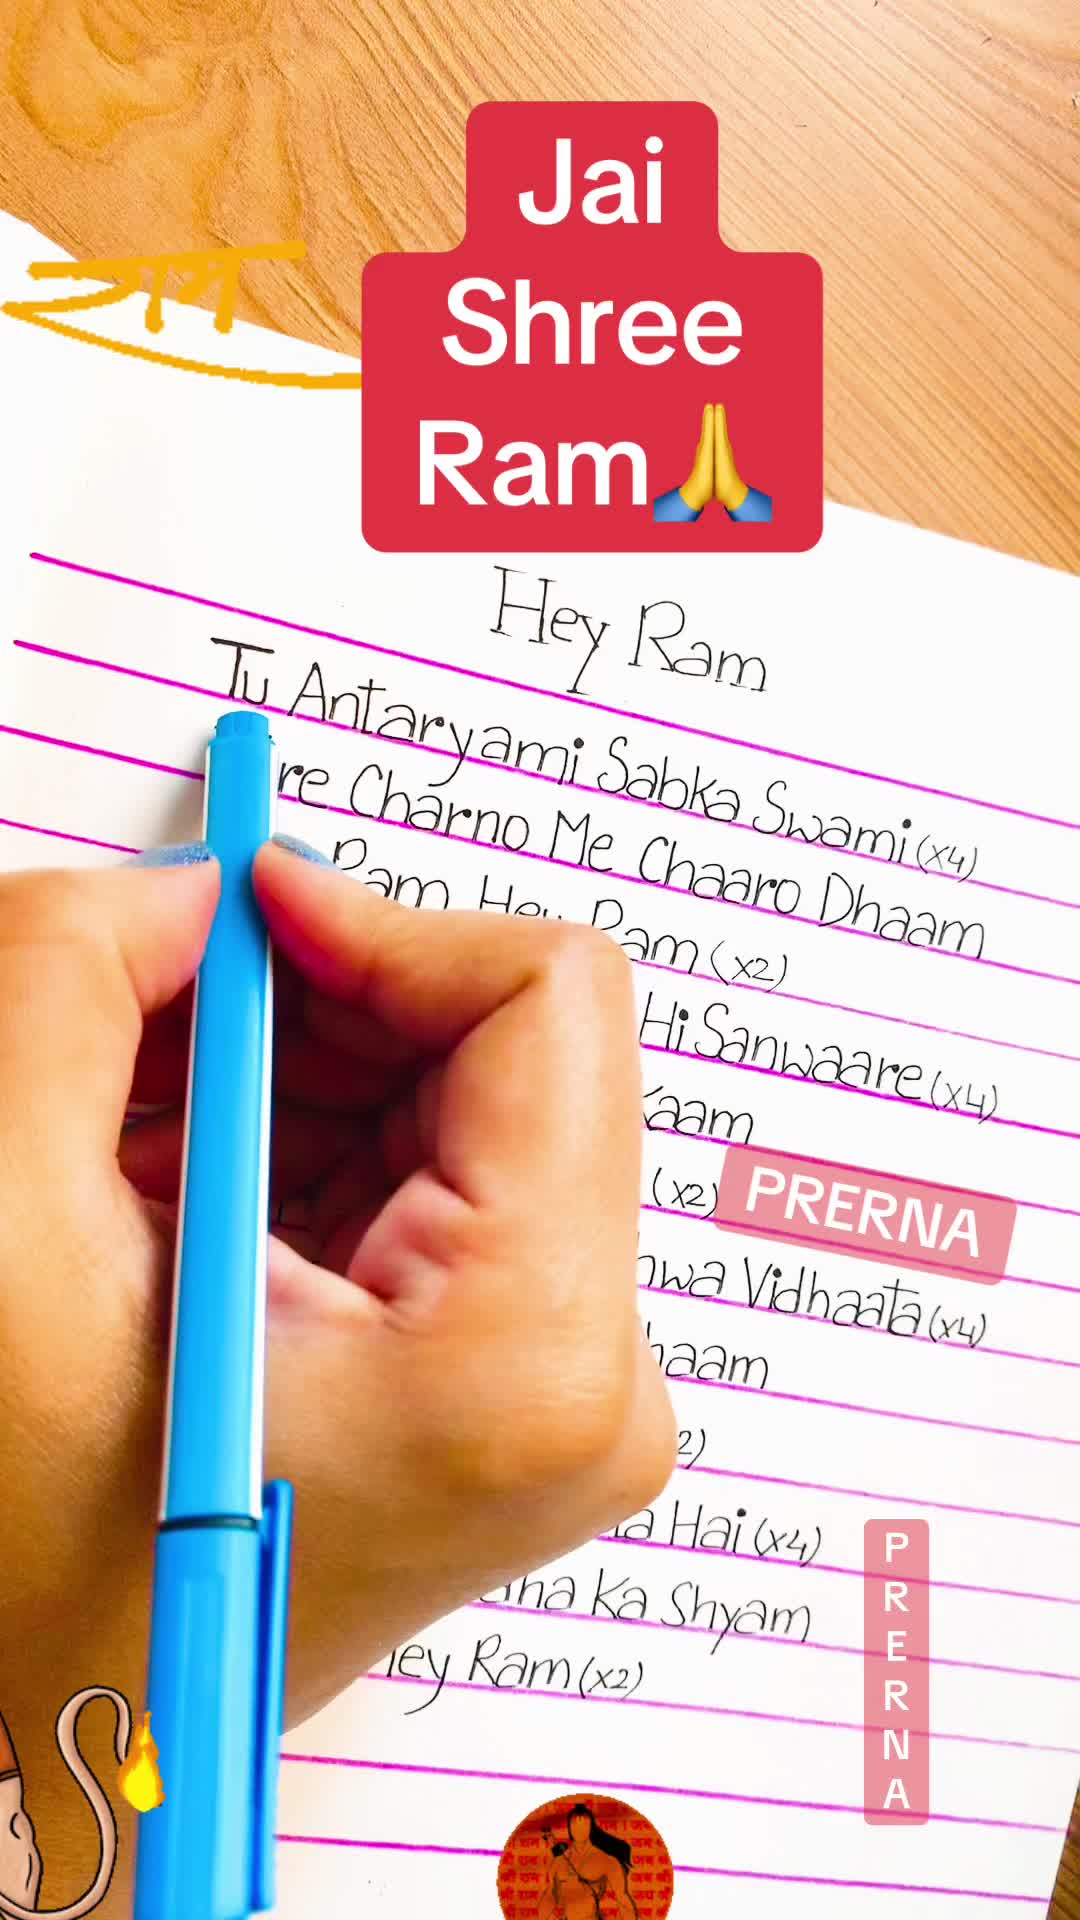 Jai
Shree
Ram🙏
राम
Hey Ram
Tu Antaryami Sabka Swami (x4)
re Charno Me Chaaro Dhaam
Ram Hey Ram (x2)
Hi Sanwaare (x4)
Kaam
(x2)
PRERNA
hwa Vidhaata (x4)
haam
2)
Hai (x4)
Ka Shyam
ey Ram (x2)
PRERNA